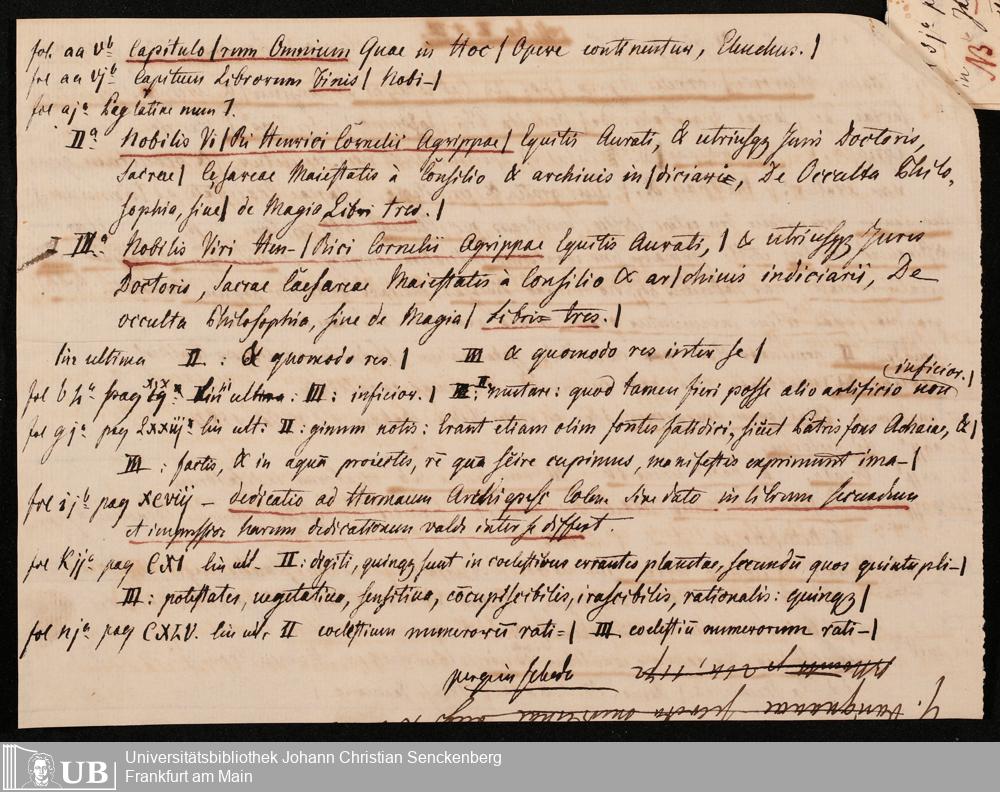 fol. aa vb Capitulo/rum Omnium Quae in Hoc / Opere continentur, Elenchus. /
fol aa vjb Capitum Librorum Finis / Nobi-/
fol aja Pag latine num 1.
IIa Nobilis Vi/Ri Henrici Cornelii Agrippae / Equitis Aurati, & utriusqz Juris Doctoris,
Sacrae / Cesareae Maiestatis à Consilio & archivis in/diciarie, De Occulta Philo,
sophia, siue / de Magia Libri tres. /
IIIa Nobilis Viri Hen-/Rici Cornelii Agrippae Equitis Aurati, / & utriusqz Juris
Doctoris, Sacrae Caesareae Maiestatis à Consilio & ar/chiuis indiciarii, De
occulta Philosophia, siue de Magia / Libri tres. /
lin ultima II : & quomodo res / III & quomodo res inter se /
inficior. /
fol b pag lin ultima : III : inficior. / II : mutare : quod tamen fieri posse alio artificio non
fol g ja pag Lxxiij lin ult : II : ginum notis : Erant etiam olim fontes fatidici, sicut Patris fons Achaiae, & /
III : factis, & in aquā proiectis, rē quā scire cupimus, manifestis exprimunt ima-/
fol i jb pag xcviij - dedicatio ad Hermanum Archiepisc Colon sine dato in librum secundum
et impressor harum dedicationum valde inter se differt.
fol K jja pag CXI lin ult - II : digiti, quinqz sunt in coelestibus errantes planetae, secundū quos quintupli-/
III : potestates, vegetatiua, sensitiua, cōcupiscibilis, irascibilis, rationalis : quinqz /
fol nja pag CXLV. lin ult. II coelestium numerorū rati= / III coelestiū numerorum rati-/
perge in scheda
3ja
in
NB
UB
Universitätsbibliothek Johann Christian Senckenberg
Frankfurt am Main